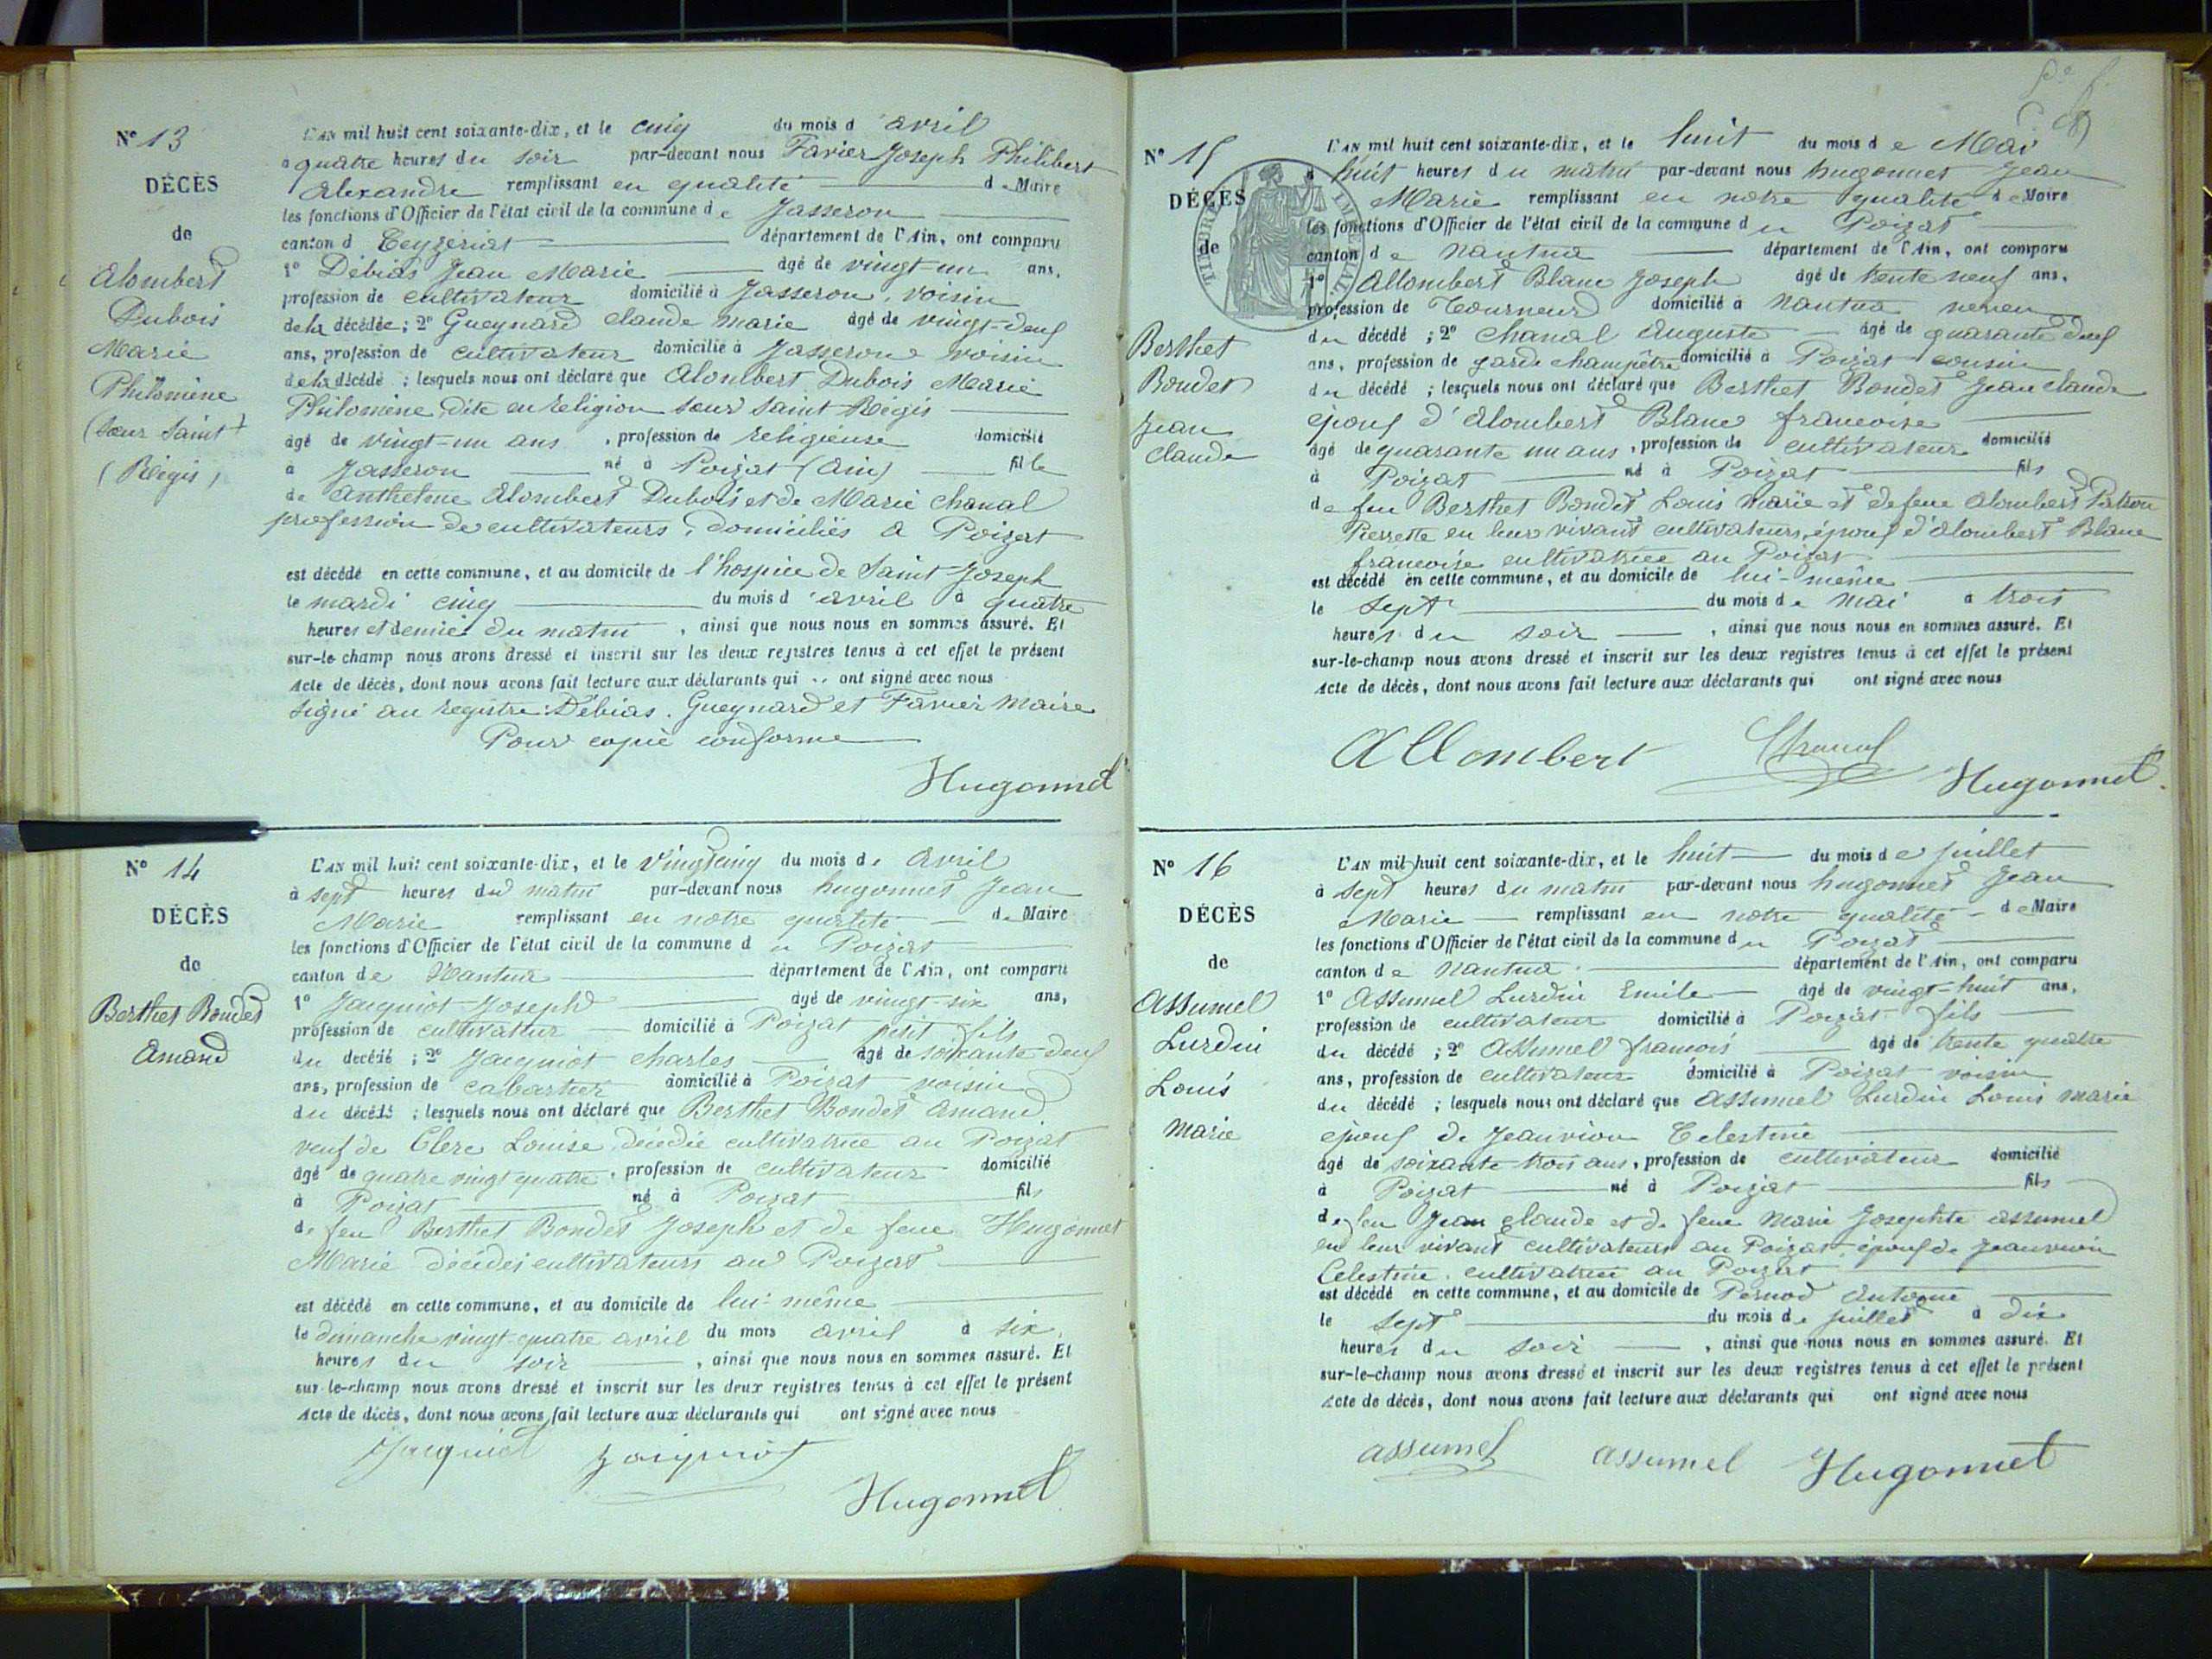 N° 13
DÉCÈS
de
Alombert
Dubois
Marie
Philomène
(Sœur Saint
(Régis)
L'AN mil huit cent soixante-dix, et le cinq du mois d'avril
à quatre heures du soir par-devant nous Favier Joseph Philibert
Alexandre remplissant en qualité de Maire
les fonctions d'Officier de l'état civil de la commune de Jasseron
canton d Ceyzeriat département de l'Ain, ont comparu
1° Débias Jean Marie âgé de vingt-un ans,
profession de cultivateur domicilié à Jasseron, voisin
de la décédée ; 2° Gueynard Claude Marie âgé de vingt-deuf
ans, profession de cultivateur domicilié à Jasseron voisin
de la décédé ; lesquels nous ont déclaré que Alombert Dubois Marie
Philomène, dite en religion sœur Saint Régis
âgé de vingt-un ans, profession de religieuse domicilié
à Jasseron né à Poizat (Ain) fille
de Anthelme Alombert Dubois et de Marie Chanal
profession de cultivateurs, domiciliés à Poizat
est décédé en cette commune, et au domicile de l'hospice de Saint Joseph
le mardi cinq du mois d'avril à quatre
heures et demie du matin, ainsi que nous nous en sommes assuré. Et
sur-le-champ nous avons dressé et inscrit sur les deux registres tenus à cet effet le présent
Acte de décès, dont nous avons fait lecture aux déclarants qui ont signé avec nous
Signé au registre : Débias. Gueynard et Favier Maire
Pour copie conforme
Hugonnet
N° 14
DÉCÈS
de
Berthet Bondet
Amand
L'AN mil huit cent soixante-dix, et le vingt cinq du mois d. Avril
à sept heures du matin par-devant nous hugonnet Jean
Marie remplissant en notre qualité de Maire
les fonctions d'Officier de l'état civil de la commune du Poizat
canton de Nantua département de l'Ain, ont comparu
1° Jacquiot Joseph âgé de vingt-six ans,
profession de cultivateur domicilié à Poizat petit fils
du décédé ; 2° Jacquiot Charles âgé de soixante-deuf
ans, profession de cabartier domicilié à Poizat voisin
du décédé ; lesquels nous ont déclaré que Berthet Bondet Amand
veuf de Clerc Louise, décédée cultivatrice au Poizat
âgé de quatre vingt quatre, profession de cultivateur domicilié
à Poizat né à Poizat fils
de feu Berthet Bondet Joseph et de feue Hugonnet
Marie décédés cultivateurs au Poizat
est décédé en cette commune, et au domicile de lui-même
le dimanche vingt-quatre avril du mois avril à six
heures du soir, ainsi que nous nous en sommes assuré. Et
sur-le-champ nous avons dressé et inscrit sur les deux registres tenus à cet effet le présent
Acte de décès, dont nous avons fait lecture aux déclarants qui ont signé avec nous
Jacquiot Jacquiot
Hugonnet
N° 15
DÉCÈS
de
TIMBRE IMPERIAL
Berthet
Bondet
Jean
Claude
L'AN mil huit cent soixante-dix, et le huit du mois de Mai
à huit heures du matin par-devant nous hugonnet Jean
Marie remplissant en notre qualité de Maire
les fonctions d'Officier de l'état civil de la commune du Poizat
canton de Nantua département de l'Ain, ont comparu
1° Allombert Blanc Joseph âgé de trente neuf ans,
profession de Tourneur domicilié à Nantua neveu
du décédé ; 2° Chanal Auguste âgé de quarante deuf
ans, profession de garde champêtre domicilié à Poizat cousin
du décédé ; lesquels nous ont déclaré que Berthet Bondet Jean Claude
épouf d'Alombert Blanc françoise
âgé de quarante un ans, profession de cultivateur domicilié
à Poizat né à Poizat fils
de feu Berthet Bondet Louis Marie et de feue Alombert Patron
Pierrette en leur vivant cultivateurs, épouf d'Alombert Blanc
françoise cultivatrice au Poizat
est décédé en cette commune, et au domicile de lui-même
le Sept du mois de Mai à trois
heures du soir, ainsi que nous nous en sommes assuré. Et
sur-le-champ nous avons dressé et inscrit sur les deux registres tenus à cet effet le présent
Acte de décès, dont nous avons fait lecture aux déclarants qui ont signé avec nous
Allombert Chanal Hugonnet
N° 16
DÉCÈS
de
Assumel
Lurdin
Louis
Marie
L'AN mil huit cent soixante-dix, et le huit du mois de juillet
à sept heures du matin par-devant nous hugonnet Jean
Marie remplissant en notre qualité de Maire
les fonctions d'Officier de l'état civil de la commune du Poizat
canton de Nantua département de l'Ain, ont comparu
1° Assumel Lurdin Emile âgé de vingt-huit ans,
profession de cultivateur domicilié à Poizat fils
du décédé ; 2° Assumel françois âgé de trente quatre
ans, profession de cultivateur domicilié à Poizat voisin
du décédé ; lesquels nous ont déclaré que Assumel Lurdin Louis Marie
épouf de Jeanvion Celestine
âgé de soixante trois ans, profession de cultivateur domicilié
à Poizat né à Poizat fils
de feu Jean Claude et de feue Marie Josephte assumel
en leur vivant cultivateurs au Poizat, épouf de Jeanvion
Celestine cultivatrice au Poizat
est décédé en cette commune, et au domicile de Pernod Antoine
le Sept du mois de juillet à dix
heures du soir, ainsi que nous nous en sommes assuré. Et
sur-le-champ nous avons dressé et inscrit sur les deux registres tenus à cet effet le présent
Acte de décès, dont nous avons fait lecture aux déclarants qui ont signé avec nous
assumel assumel Hugonnet